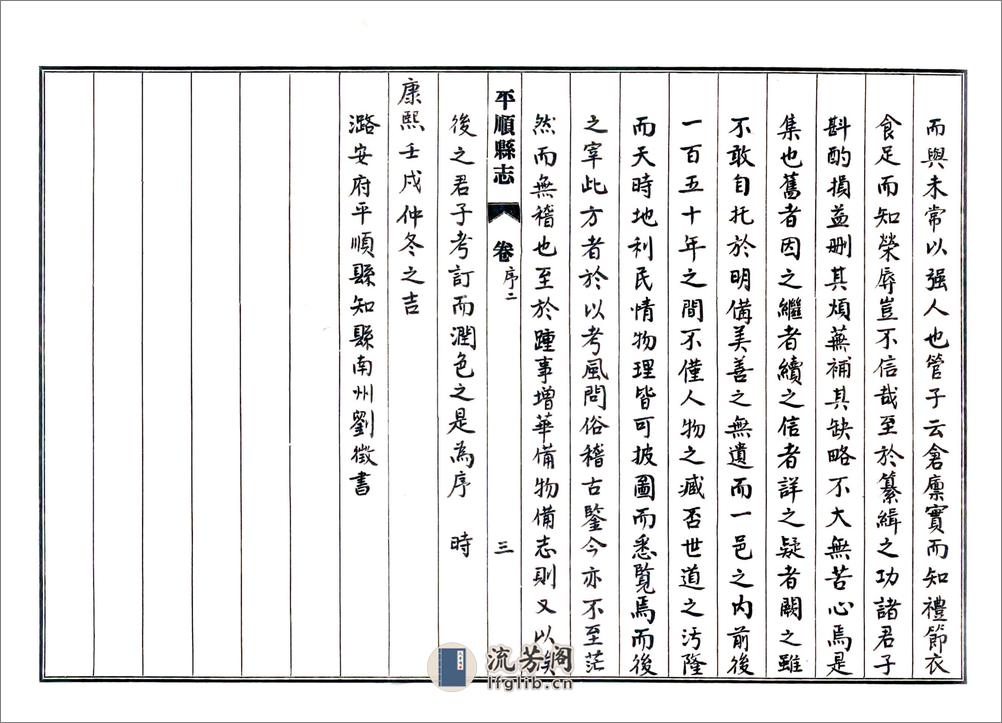 而與未常以强人也管子云倉廩實而知禮節衣
食足而知榮辱豈不信哉至於纂緝之功諸君子
斟酌損益删其煩蕪補其缺略不大無苦心焉是
集也舊者因之繼者續之信者詳之疑者闕之雖
不敢自托於明備美善之無遺而一邑之内前後
一百五十年之間不僅人物之臧否世道之汚隆
而天時地利民情物理皆可披圖而悉覽焉而後
之宰此方者於以考風問俗稽古鑒今亦不至茫
然而無稽也至於踵事增華備物備志則又以俟
平順縣志 卷 序二 三
後之君子考訂而潤色之是為序 時
康熙壬戌仲冬之吉
潞安府平順縣知縣南州劉徵書
流芳阁
lfglib.cn